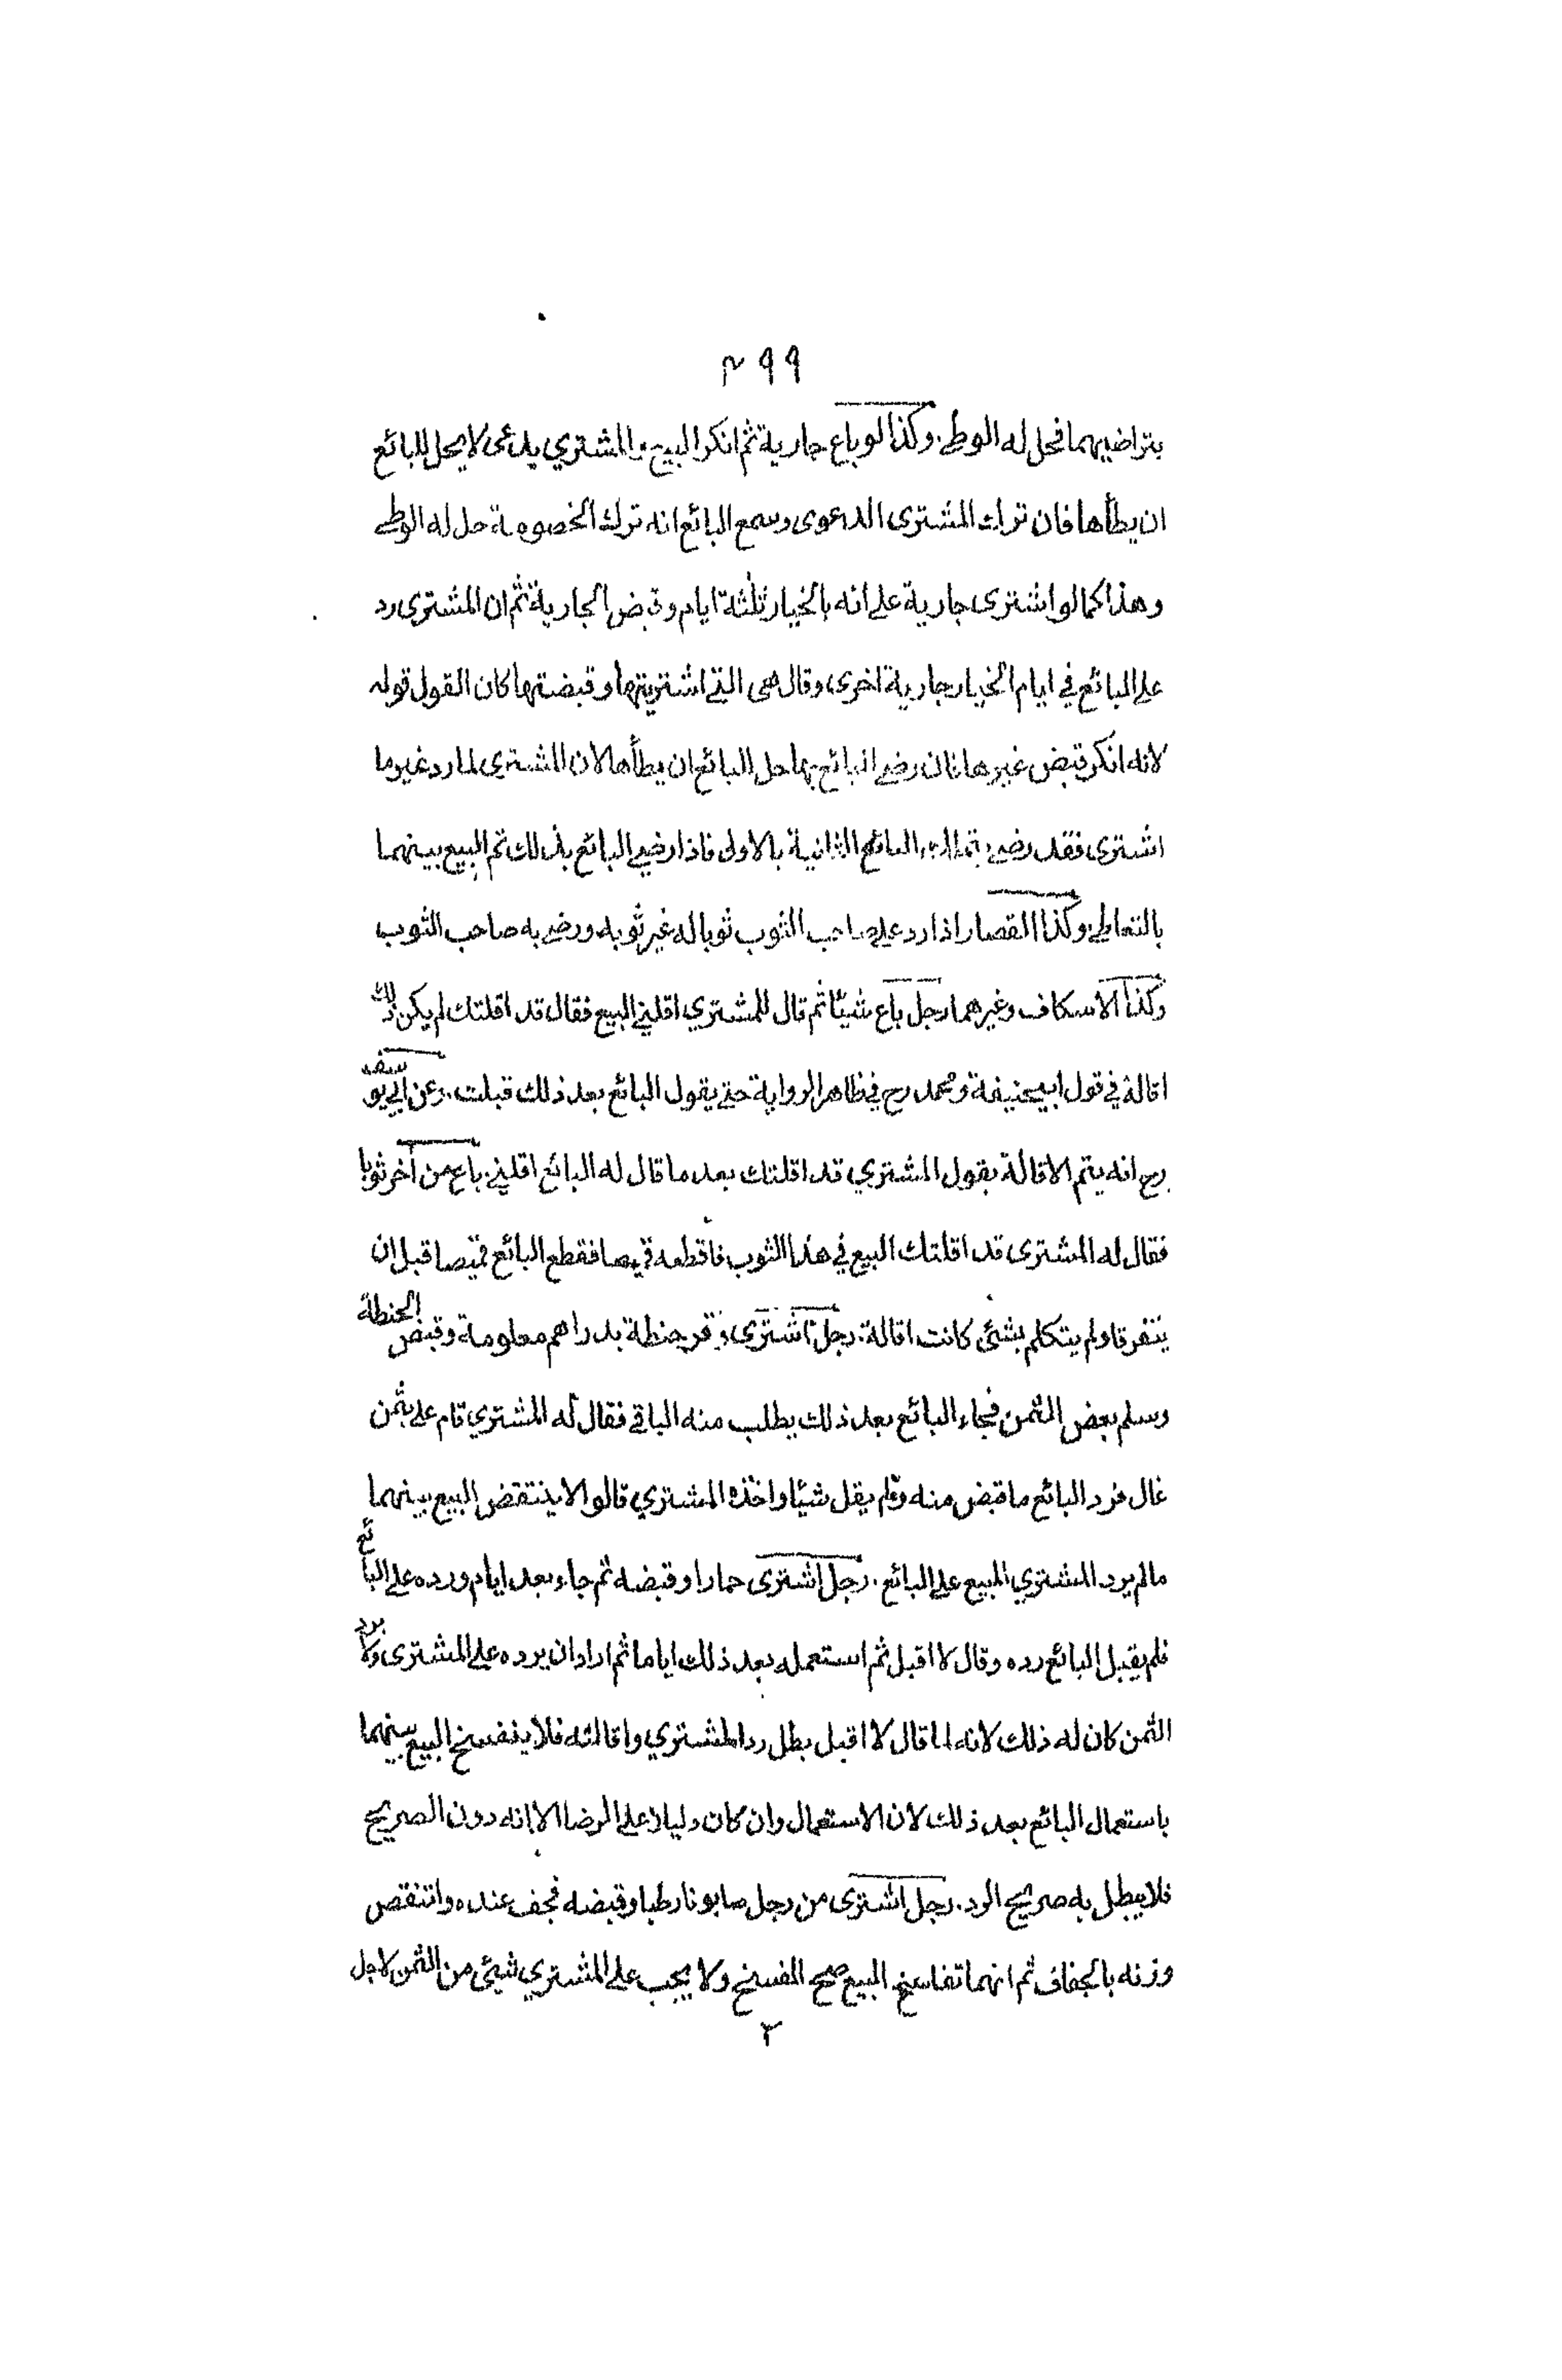 ٤٩٩
بتراضيهما فحل له الوطي. وكذا لو باع جارية ثم انكر البيع والمشتري يدعى لا يحل للبائع
ان يطأها فان ترك المشترى الدعوى وسمع البائع انه ترك الخصومة حل له الوطي
وهذا كما لو اشترى جارية على انه بالخيار ثلثة ايام وقبض الجارية ثم ان المشترى رد
على البائع في ايام الخيار جارية اخرى وقال هى التي اشتريتها وقبضتها كان القول قوله
لانه انكر قبض غيرها فان رضي البائع بها حل للبائع ان يطأها لان المشتري لما رد غير ما
اشترى فقد رضي بتمليك البائع الثانية بالاولى فاذا رضي البائع بذلك تم البيع بينهما
بالتعاطي وكذا القصار اذا رد على صاحب الثوب ثوبا له غير ثوبه ورضي به صاحب الثوب
وكذا الاسكاف وغيرهما رجل باع شيئا ثم قال للمشتري اقلني البيع فقال قد اقلتك لم يكن ذلك
اقالة في قول ابيحنيفة ومحمد رح في ظاهر الرواية حتى يقول البائع بعد ذلك قبلت. وعن ابي يوسف
رح انه يتم الاقالة بقول المشتري قد اقلتك بعد ما قال له البائع اقلني. باع من آخر ثوبا
فقال له المشترى قد اقلتك البيع في هذا الثوب فاقطعه قميصا فقطع البائع قميصا قبل ان
يتفرقا ولم يتكلم بشئ كانت اقالة. رجل اشترى وقر حنطة بدراهم معلومة وقبض الحنطة
وسلم بعض الثمن فجاء البائع بعد ذلك يطلب منه الباقي فقال له المشتري قام على بثمن
غال فرد البائع ما قبض منه ولم يقل شيئا واخذه المشتري قالوا لا ينتقض البيع بينهما
ما لم يرد المشتري المبيع على البائع. رجل اشترى حمارا وقبضه ثم جاء بعد ايام ورده على البائع
فلم يقبل البائع رده وقال لا اقبل ثم استعمله بعد ذلك اياما ثم اراد ان يرده على المشترى ولا يرد
الثمن كان له ذلك لانه لما قال لا اقبل بطل رد المشتري واقالته فلا ينفسخ البيع بينهما
باستعمال البائع بعد ذلك لان الاستعمال وان كان دليلا على الرضا الا انه دون الصريح
فلا يبطل به صريح الرد. رجل اشترى من رجل صابونا رطبا وقبضه فجف عنده وانتقص
وزنه بالجفاف ثم انهما تفاسخا البيع صح الفسخ ولا يجب على المشتري شيئ من الثمن لاجل
٢